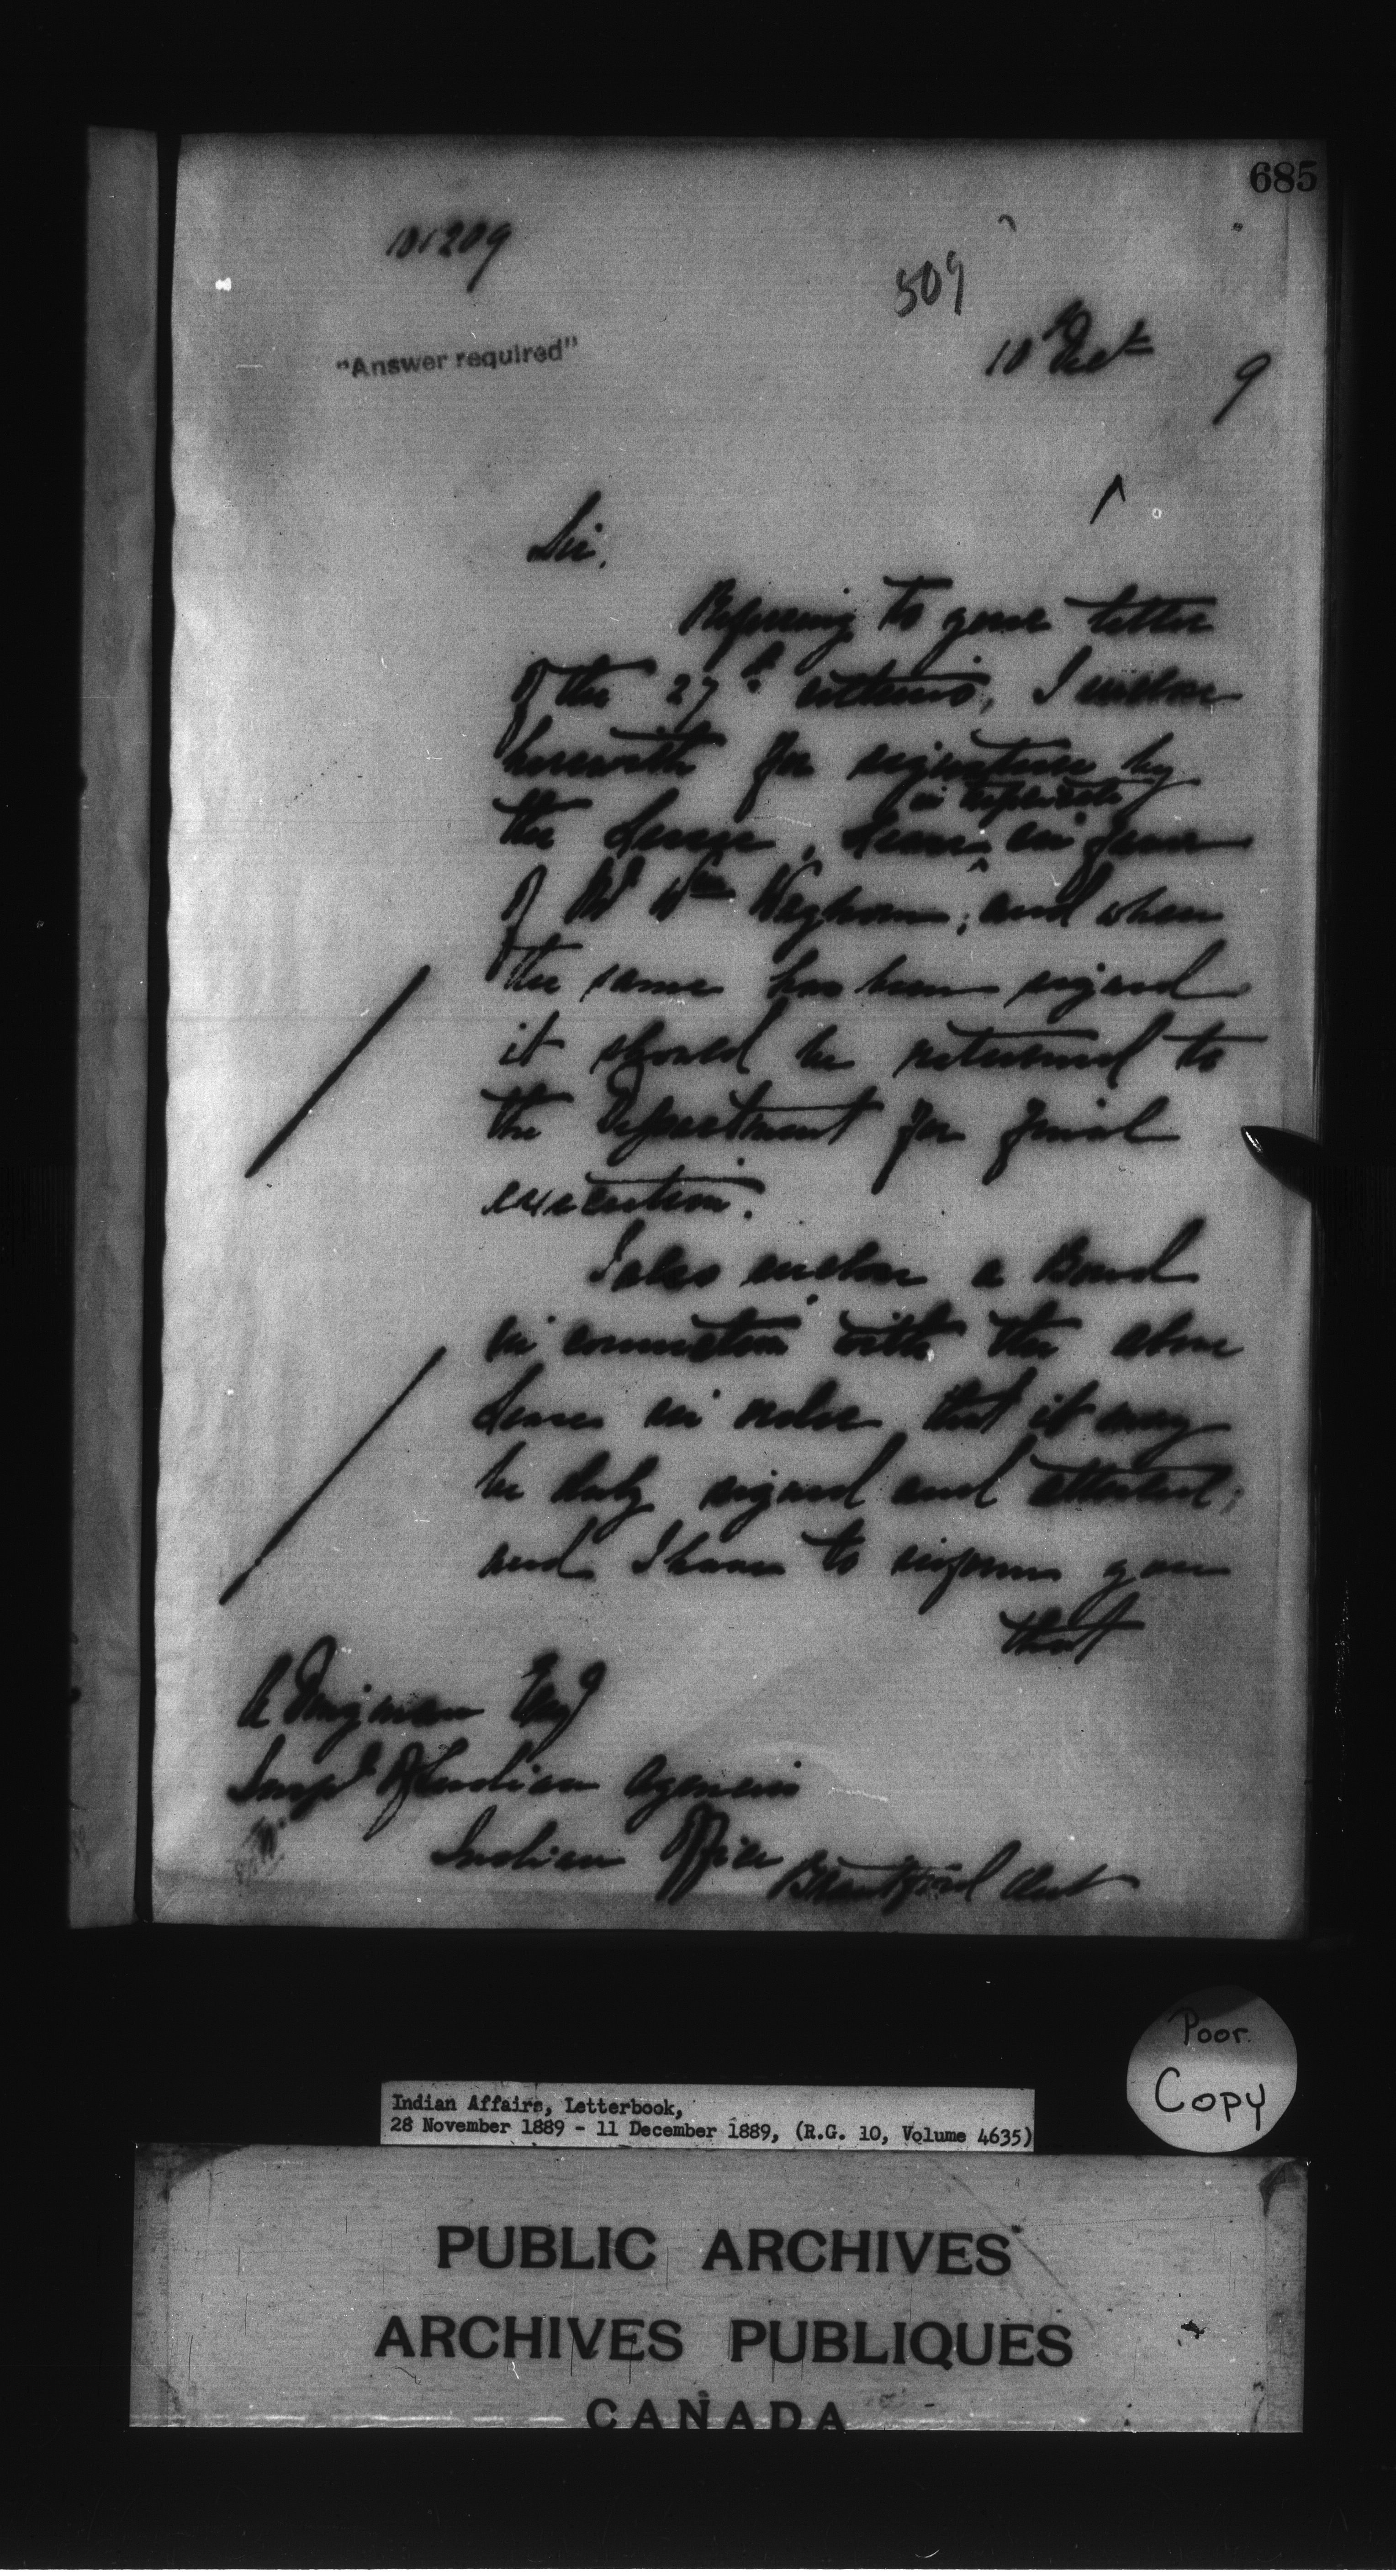 685
101209
509
"Answer required"
10 Dec
9
Sir,
Referring to your letter
of the 27th ultimo, I enclose
herewith for signature by
in triplicate
the Lessee, Lease in favor
of Mr Wm Waghorn; and when
the same has been signed
it should be returned to
the Department for final
execution.
I also enclose a Bond
in connection with the above
Lease in order that it may
be duly signed and attested;
and I have to inform you
that
A Dingman Esq
Insp of Indian Agencies
Indian Office Brantford Ont
Poor
Copy
Indian Affairs, Letterbook,
28 November 1889 - 11 December 1889, (R.G. 10, Volume 4635)
PUBLIC ARCHIVES
ARCHIVES PUBLIQUES
CANADA